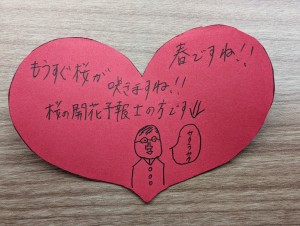 春ですね!!
もうすぐ桜が
咲きますね!!
桜の開花予報士の方です↓
サクラサク